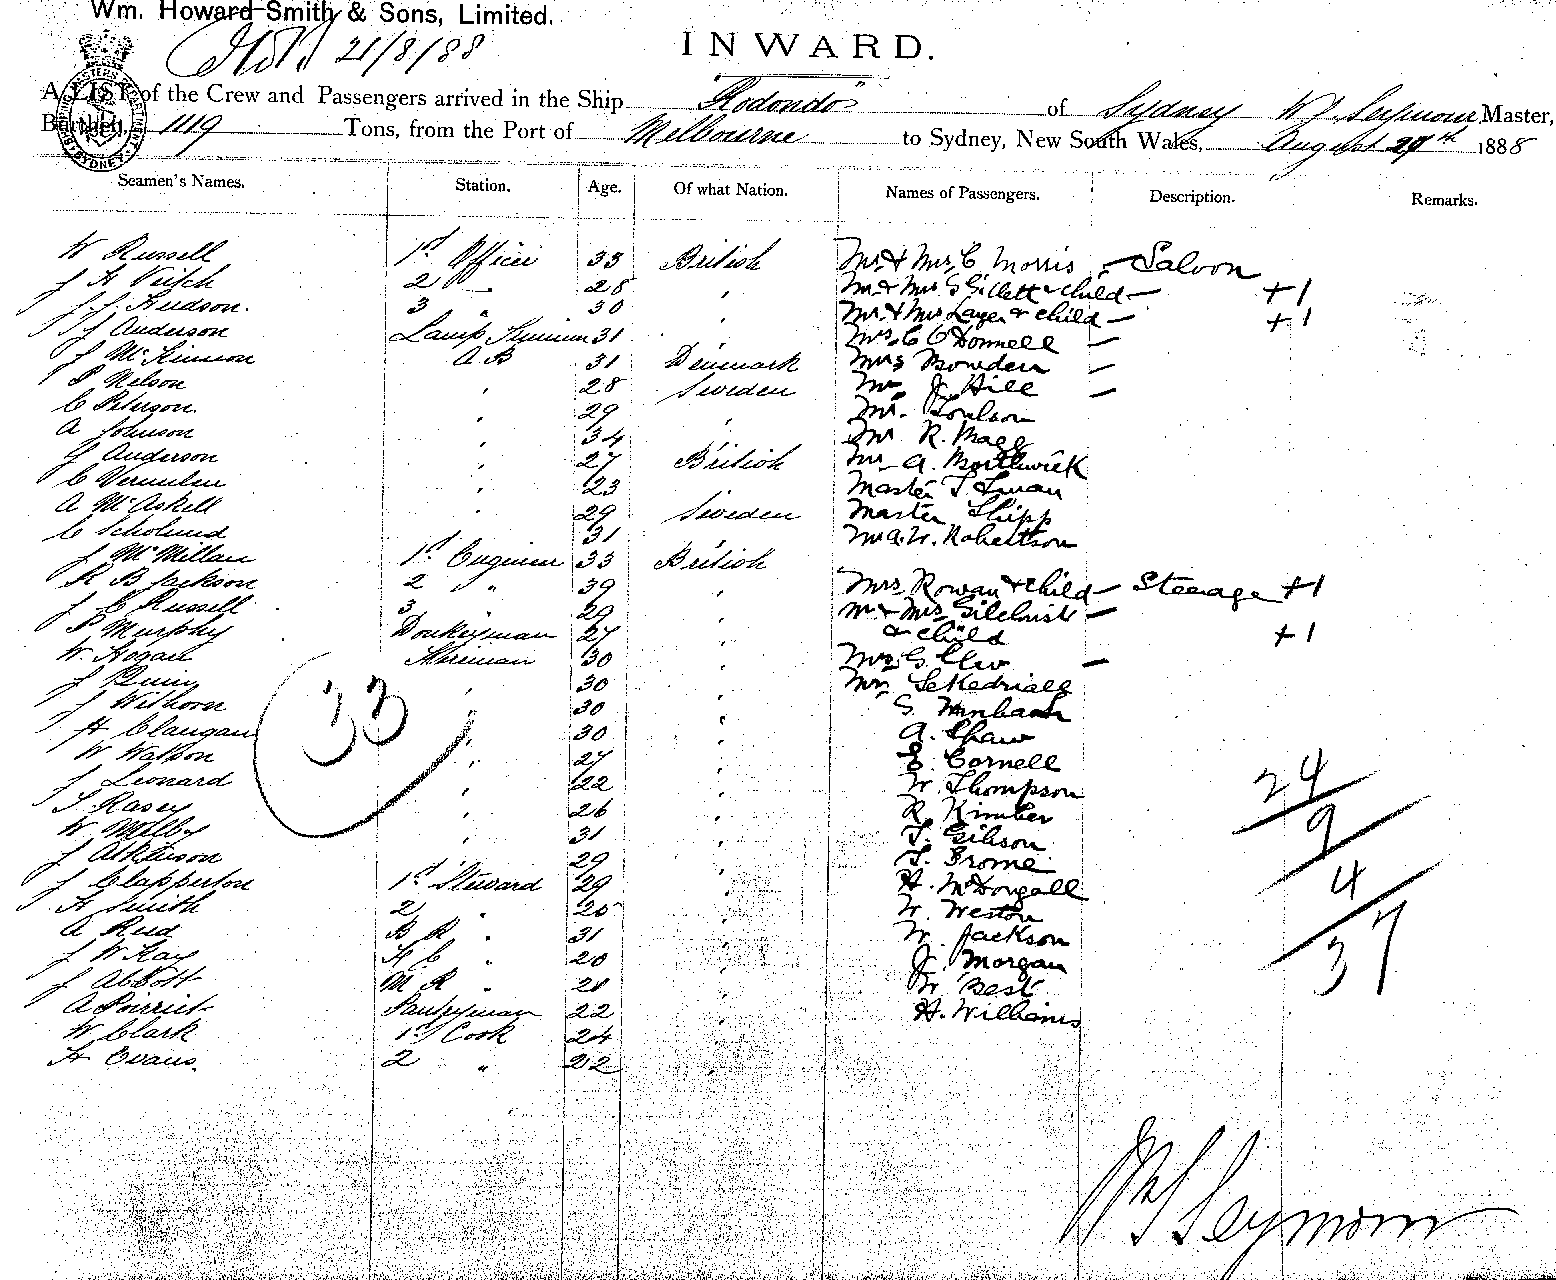 Wm. Howard Smith & Sons, Limited.
21/8/88
INWARD.
A LIST of the Crew and Passengers arrived in the Ship Rodondo of Sydney W J Seymour, Master,
Burthen, 1119 Tons, from the Port of Melbourne to Sydney, New South Wales, August 1888
Seamen's Names. Station. Age. Of what Nation. Names of Passengers. Description. Remarks.
W Russell 1st Officer 33 British Mr & Mrs C Morris Saloon
J A Veitch 2 " 28 " Mr & Mrs S Gillett & child +1
J. J. Hudson. 3 " 30 " Mr & Mrs Layer & child +1
J Anderson Lamp 31 " Mrs C O'Donnell
J McKinnon A B 31 Denmark Mrs Bowden
P Nelson " 28 Sweden Mr J Hill
C Peterson " 29 " Mr Toulson
A Johnson " 34 Mr R. Magg
G Anderson " 27 British Mr A. Borthwick
C Vermulen " 23 Master T
A McAskell " 29 Sweden Master Shipp
C Scholund 31 Mr A. W. Robertson
J McMillan 1st Engineer 33 British
R B Jackson 2 " 39 " Mrs Rowan & child Steerage +1
J C Russell 3 " 29 " Mr & Mrs Gilchrist
P Murphy Donkeyman 27 " & child +1
W. Hogan Fireman 30 " Mrs G.
J Quin " 30 " Mr
J Withorn " 30 " S.
H Clangan " 30 " A. Shaw
W Watson " 27 " E. Cornell
J Leonard " 22 " W. Thompson
T Kasey " 26 " R. Kimber
W Milby " 31 " T. Gibson
J Atkinson 29 " T. Frome
J Clapperton 1st Steward 29 " H. McDougall
H Smith 2 " 25 " W. Weston
A Reid B R " 31 " W. Jackson
J W Kay F C " 20 " J. Morgan
J Abbott M R " 21 " W Best
A Poirrier Pantryman 22 " H. Williams
W Clark 1st Cook 24
H Evans. 2 " 22 "
33
24
9
4
37
W J Seymour